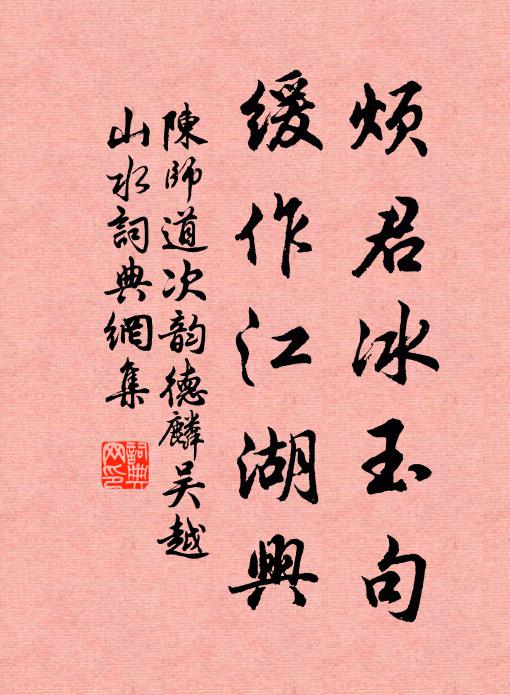 煩君冰玉句
緩作江湖興
陳師道次韵德麟吴越
山水詞典網集
詞典
网印